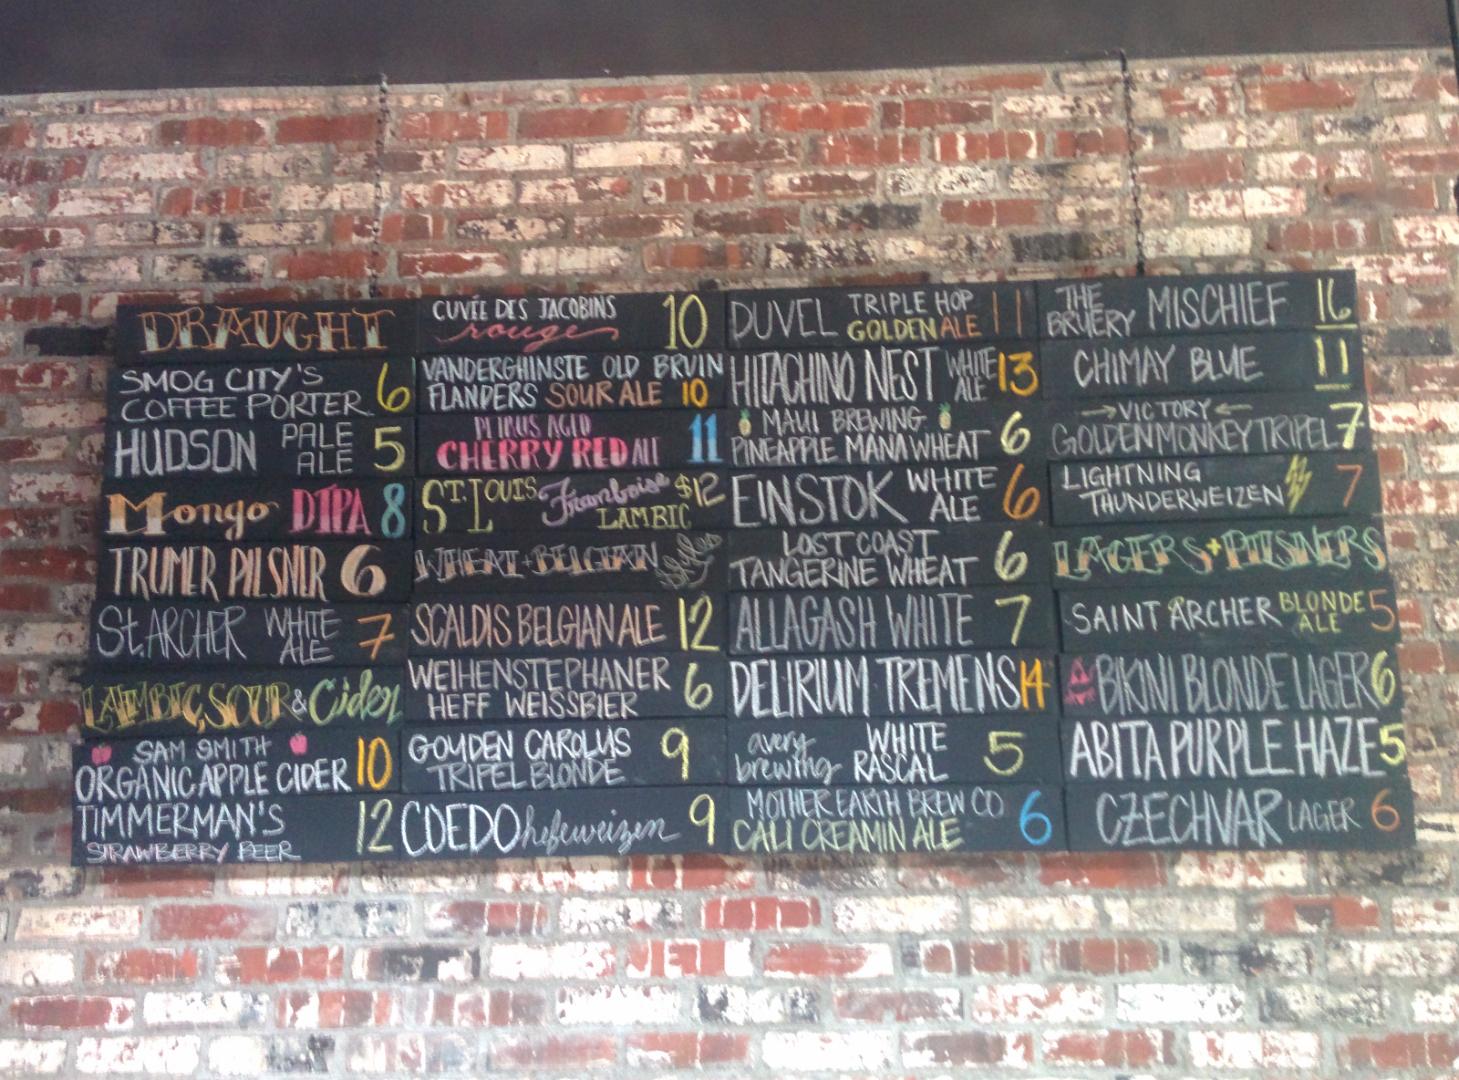 DRAUGHT
SMOG CITY'S
COFFEE PORTER 6
HUDSON PALE ALE 5
Mongo DIPA 8
TRUMER PILSNER 6
St. ARCHER WHITE ALE 7
LAMBIC, SOUR & Cider
SAM SMITH
ORGANIC APPLE CIDER 10
TIMMERMAN'S
STRAWBERRY BEER 12
CUVÉE DES JACOBINS
rouge 10
VANDERGHINSTE OLD BRUIN
FLANDERS SOUR ALE 10
CHERRY RED ALE 11
ST. LOUIS Framboise
LAMBIC $12
WHEAT + BELGIAN Styles
SCALDIS BELGIAN ALE 12
WEIHENSTEPHANER
HEFF WEISSBIER 6
GOUDEN CAROLUS
TRIPEL BLONDE 9
COEDO hefeweizen 9
DUVEL TRIPLE HOP
GOLDEN ALE 11
HITACHINO NEST WHITE ALE 13
MAUI BREWING
PINEAPPLE MANA WHEAT 6
EINSTOK WHITE ALE 6
LOST COAST
TANGERINE WHEAT 6
ALLAGASH WHITE 7
DELIRIUM TREMENS 14
avery brewing WHITE RASCAL 5
MOTHER EARTH BREW CO
CALI CREAMIN ALE 6
THE BRUERY MISCHIEF 16
CHIMAY BLUE 11
→VICTORY←
GOLDEN MONKEY TRIPEL 7
LIGHTNING
THUNDERWEIZEN 7
LAGERS + PILSNERS
SAINT ARCHER BLONDE ALE 5
BIKINI BLONDE LAGER 6
ABITA PURPLE HAZE 5
CZECHVAR LAGER 6